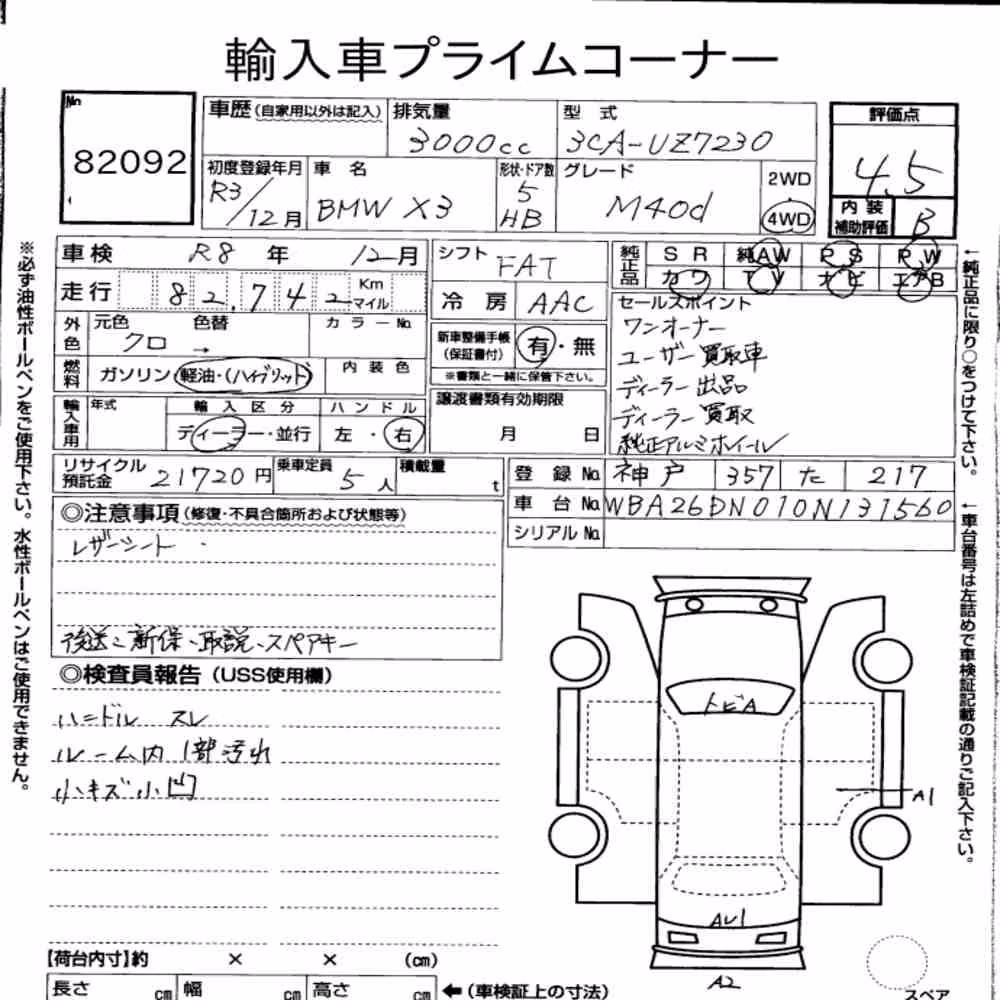 輸入車プライムコーナー
No.
82092
車歴(自家用以外は記入)
排気量
3000cc
型式
3CA-UZ7230
評価点
4.5
初度登録年月
R3/12月
車名
BMW X3
形状・ドア数
5
HB
グレード
M40d
2WD
4WD
内装
補助評価
B
車検 R8年 12月
シフト FAT
純正品
SR 純AW PS PW
カワ TV ナビ エアB
走行 82,742 Km マイル
冷房 AAC
セールスポイント
ワンオーナー
ユーザー買取車
ディーラー出品
ディーラー買取
純正アルミホイール
外色
元色 色替
クロ →
カラーNo.
新車整備手帳
(保証書付)
有・無
※書類と一緒に保管下さい。
燃料
ガソリン 軽油・(ハイブリッド)
内装色
輸入車用
年式
輸入区分
ディーラー・並行
ハンドル
左・右
譲渡書類有効期限
月 日
リサイクル
預託金
21720円
乗車定員
5人
積載量
t
登録No. 神戸 357 た 217
車台No. WBA26DN010N131560
シリアルNo.
◎注意事項(修復・不具合箇所および状態等)
レザーシート
後送:新保、取説、スペアキー
◎検査員報告(USS使用欄)
ハンドル スレ
ルーム内1部汚れ
小キズ小凹
トビA
A1
AU1
A2
【荷台内寸】約 × × (cm)
長さ cm 幅 cm 高さ cm
←(車検証上の寸法)
スペア
※必ず油性ボールペンをご使用下さい。水性ボールペンはご使用できません。
←純正品に限り○をつけて下さい。
←車台番号は左詰めで車検証記載の通りご記入下さい。